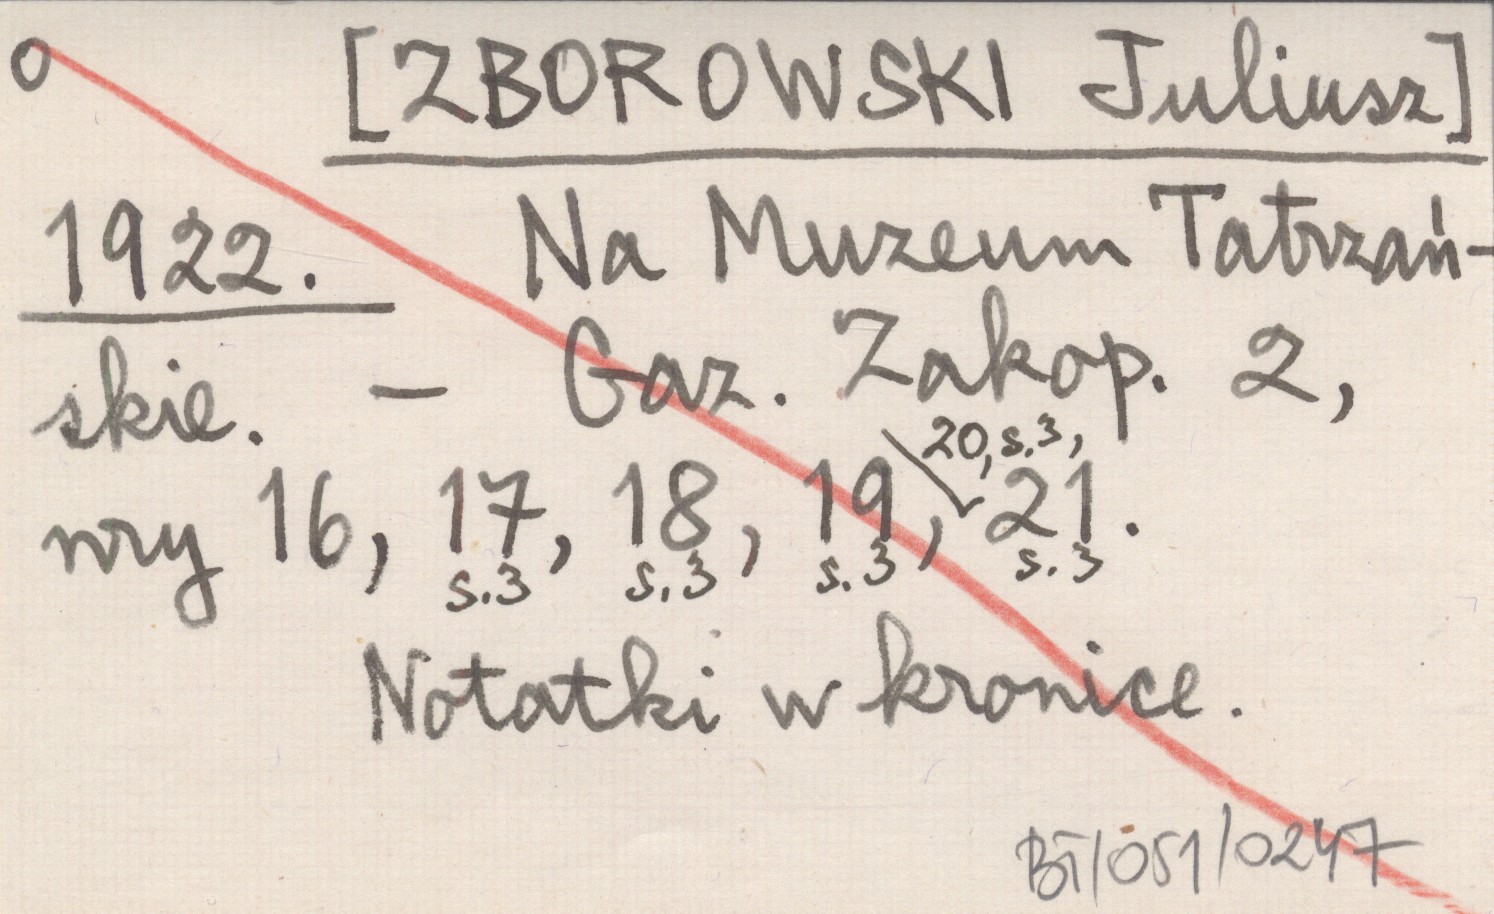 o [ZBOROWSKI Juliusz]
1922. Na Muzeum Tatrzań-
skie. — Gaz. Zakop. 2,
20, s.3,
nry 16, 17, 18, 19, 21.
s.3 s.3 s.3 s.3
Notatki w kronice.
BT/051/0247